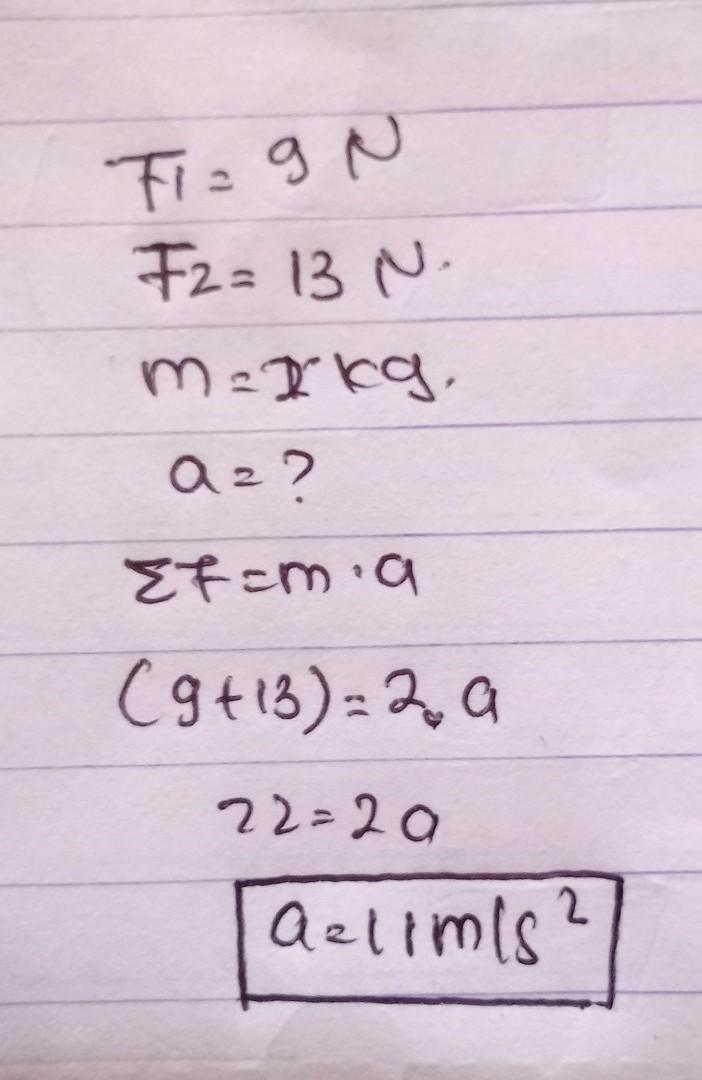 F1 = 9 N
F2 = 13 N.
m = kg.
a = ?
ΣF = m · a
(9 + 13) = 2 . a
22 = 2 a
a = 11 m/s²